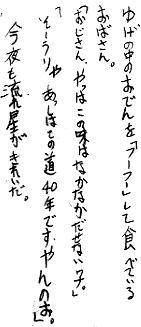 ゆげの中のおでんを「フーフー」して食べている
おばさん。
「おじさん、やっぱこの味はなかなかだせないワ。」
「そーうりゃ あっしはこの道40年ですやんのお。」
今夜も流れ星がきれいだ。